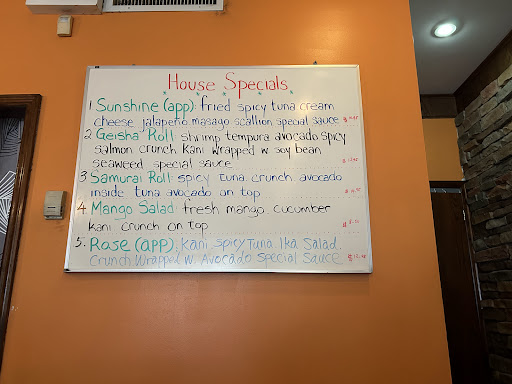 House Specials
1 Sunshine (app): fried spicy tuna cream
cheese jalapeño masago scallion special sauce
2 Geisha Roll: shrimp tempura avocado spicy
salmon crunch kani wrapped w soy bean
seaweed special sauce
3 Samurai Roll: spicy tuna crunch avocado
inside tuna avocado on top
4. Mango Salad: fresh mango. cucumber
kani crunch on top
5. Rose (app): Kani spicy Tuna Ika Salad.
Crunch Wrapped w. Avocado special Sauce